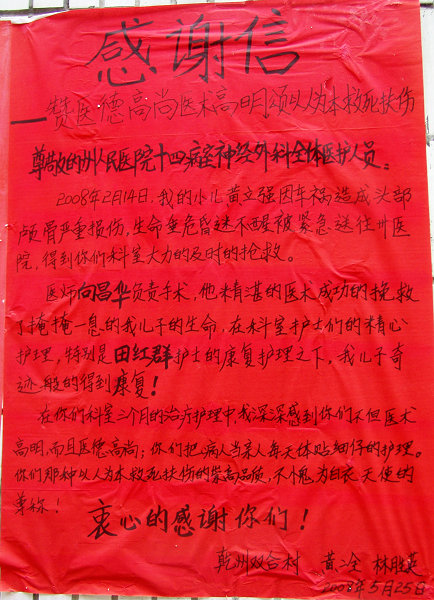 感谢信
——赞医德高尚医术高明颂以人为本救死扶伤
尊敬的州人民医院十四病室神经外科全体医护人员。
2008年2月14日,我的小儿黄立强因车祸造成头部
颅骨严重损伤,生命垂危昏迷不醒被紧急送往州医
院,得到你们科室大力的及时的抢救。
医师向昌华负责手术,他精湛的医术成功的挽救
了掩掩一息的我儿子的生命,在科室护士们的精心
护理,特别是田红群护士的康复护理之下,我儿子奇
迹般的得到康复!
在你们科室三个月的治疗护理中,我深深感到你们不但医术
高明,而且医德高尚;你们把病人当亲人每天体贴细仔的护理。
你们那种以人为本救死扶伤的崇高品质,不愧为白衣天使的
尊称!
衷心的感谢你们!
乾州双合村 黄二全 林胜英
2008年5月25日